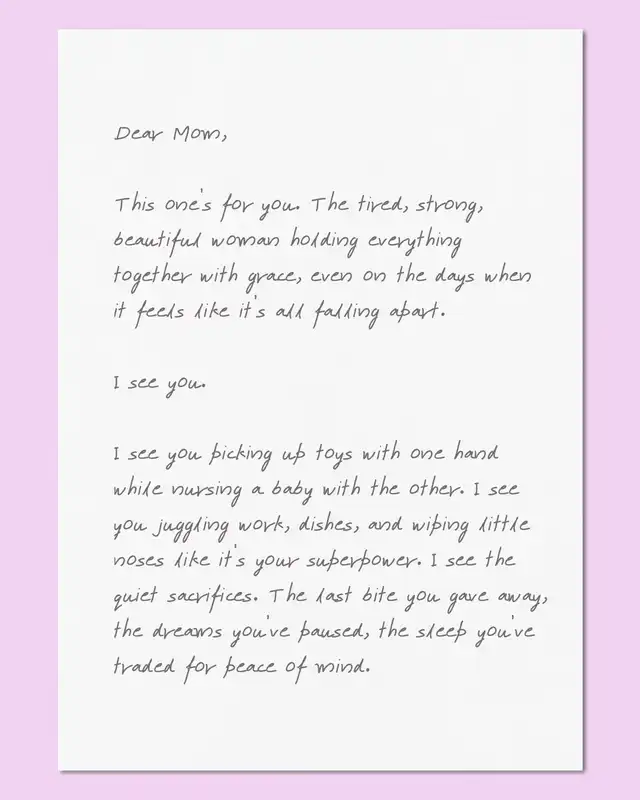 Dear Mom,
This one's for you. The tired, strong,
beautiful woman holding everything
together with grace, even on the days when
it feels like it's all falling apart.
I see you.
I see you picking up toys with one hand
while nursing a baby with the other. I see
you juggling work, dishes, and wiping little
noses like it's your superpower. I see the
quiet sacrifices. The last bite you gave away,
the dreams you've paused, the sleep you've
traded for peace of mind.